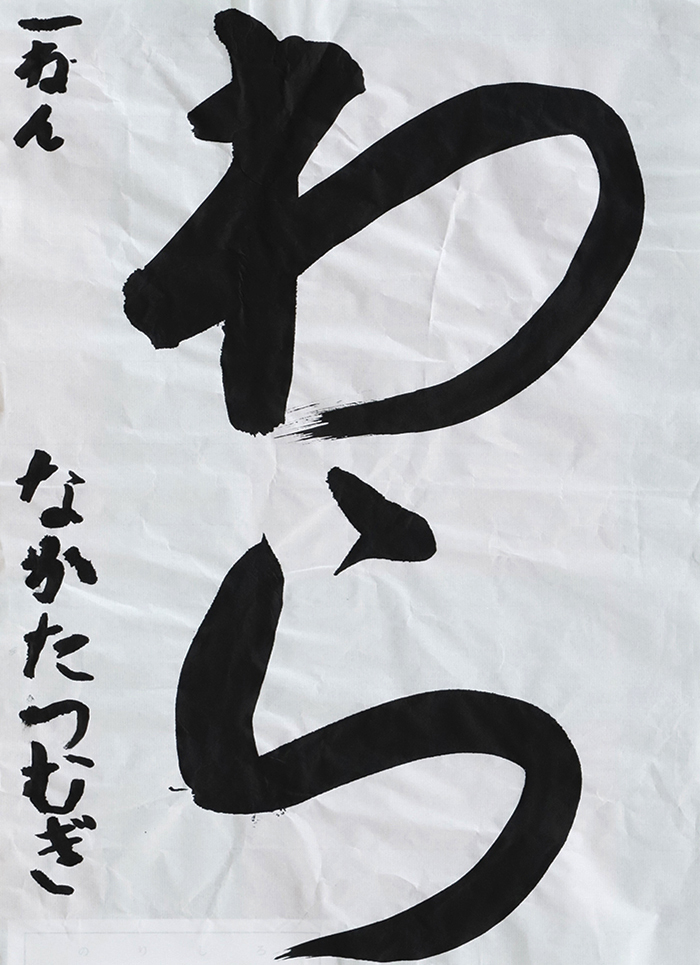 わら
一ねん
なかたつむぎ